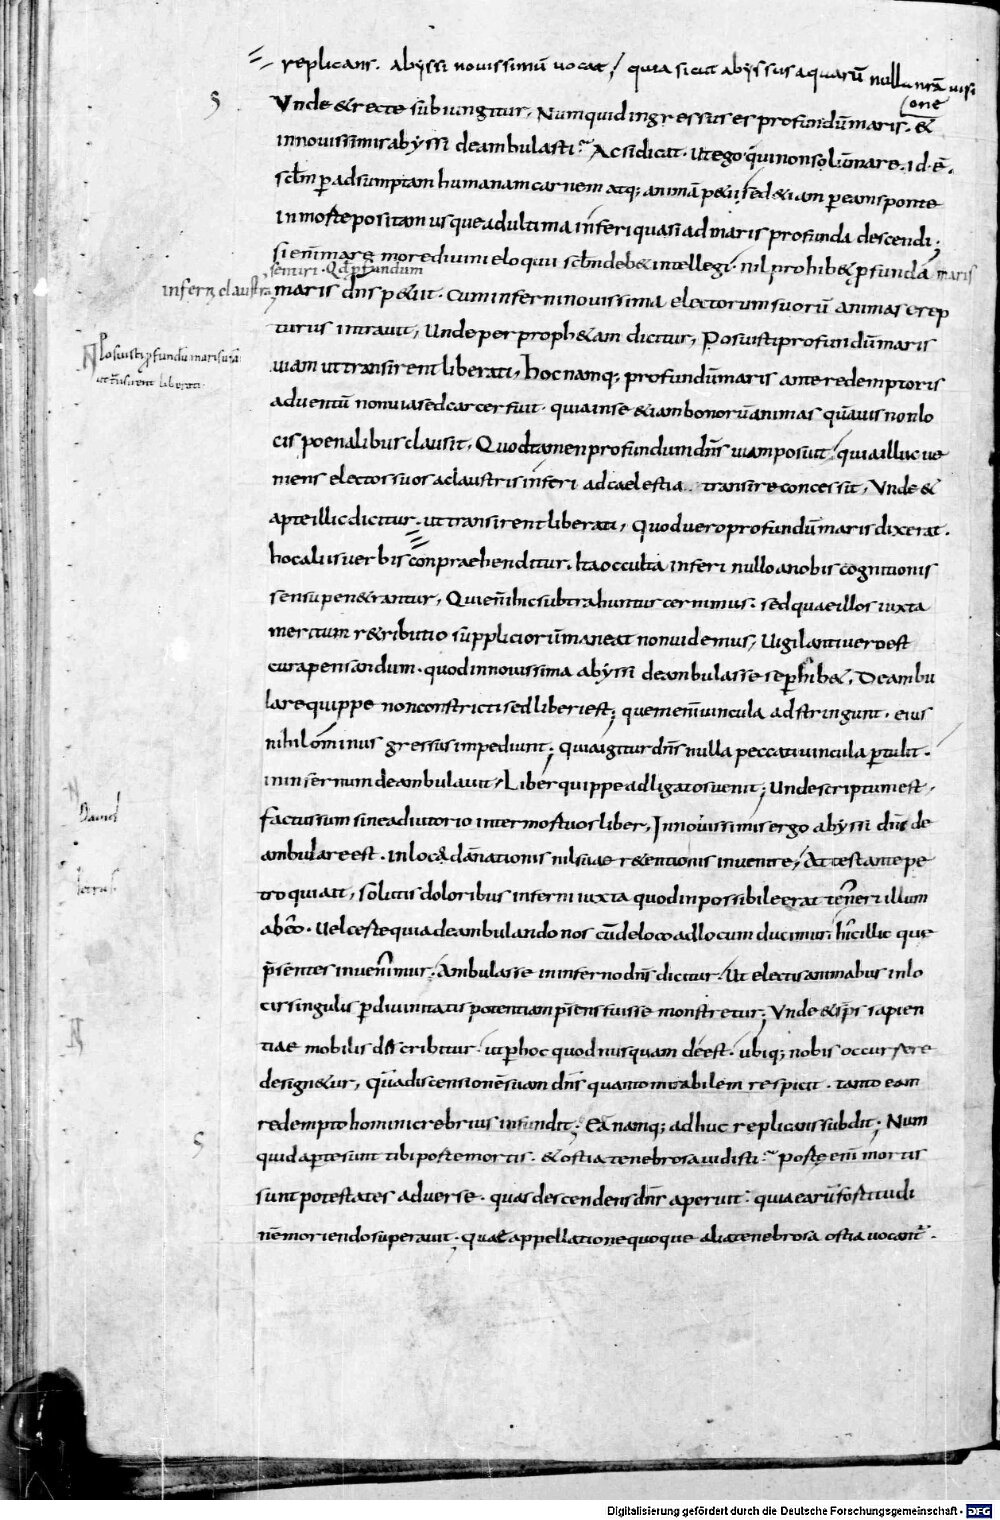 replicans. abyssi nouissimū uocat, quia sicut abyssus aquarū nulla nrā uisi
one
Vnde & recte subiungitur, Numquid ingressus es profundū maris. &
in nouissimis abyssi deambulasti. Ac si dicat. Ut ego qui non solū mare. id ē.
sclm p adsumptam humanam carnem atq; animā petii, sed & iam per eam sponte
in morte positam usque ad ultima inferi quasi ad maris profunda descendi;
si enī mare more diuini eloquii sclm deb& intellegi. nil prohib& profunda maris
sentiri. Qd profundum
inferni claustra
maris dns petiit. cum inferni nouissima electorum suorū animas erep
turus intrauit, Unde per proph&am dicitur, Posuisti profundū maris
Posuisti profundū maris uiā
ut transirent liberati
uiam ut transirent liberati, hoc namq; profundū maris ante redemptoris
aduentū non uia sed carcer fuit. quia in se &iam bonorū animas quāuis non lo
cis poenalibus clausit, Quod tamen profundum dns uiam posuit, quia illuc ue
niens electos suos a claustris inferi ad caelestia transire concessit, Vnde &
apte illic dicitur. ut transirent liberati, Quod uero profundū maris dixerat.
hoc aliis uerbis conpraehenditur. Ita occulta inferi nullo a nobis cognitionis
sensu pen&rantur, Qui enī hic subtrahuntur cernimus; sed quae illos iuxta
meritum r&ributio suppliciorū maneat non uidemus, Uigilanti uero est
cura pensandum. quod in nouissima abyssi deambulasse se perhib&, Deambu
lare quippe non constricti sed liberi est; quem enī uincula adstringunt. eius
nihilominus gressus impediunt; Quia igitur dns nulla peccati uincula ptulit.
in infernum deambulauit, Liber quippe ad ligatos uenit; Unde scriptum est,
Dauid
factus sum sine adiutorio inter mortuos liber, In nouissimis ergo abyssi dni de
ambulare est. in loco dānationis nil suae r&entionis inuenire, Attestante pe
tro qui ait, solutis doloribus inferni iuxta quod inpossibile erat teneri illum
ab eo. Uel certe quia deambulando nos cū de loco ad locum ducimur. hic illic que
psentes inuenimur. Ambulasse in inferno dns dicitur. Ut electis animabus in lo
cis singulis p diuinitatis potentiam psens fuisse monstretur; Vnde & sps sapien
tiae mobilis describitur. ut p hoc quod nusquam deest. ubiq; nobis occurrere
design&ur, Quā discensionē suam dns quanto mirabilem respicit. tanto eam
redempto homini crebrius insundit; Ea namq; adhuc replicans subdit; Num
quid apte sunt tibi porte mortis. & ostia tenebrosa uidisti. Porte enī mortis
sunt potestates aduerse. quas descendens dns aperuit. quia earū fortitudi
nē moriendo superauit. Quae appellatione quoque alia tenebrosa ostia uocant.
Digitalisierung gefördert durch die Deutsche Forschungsgemeinschaft - DFG